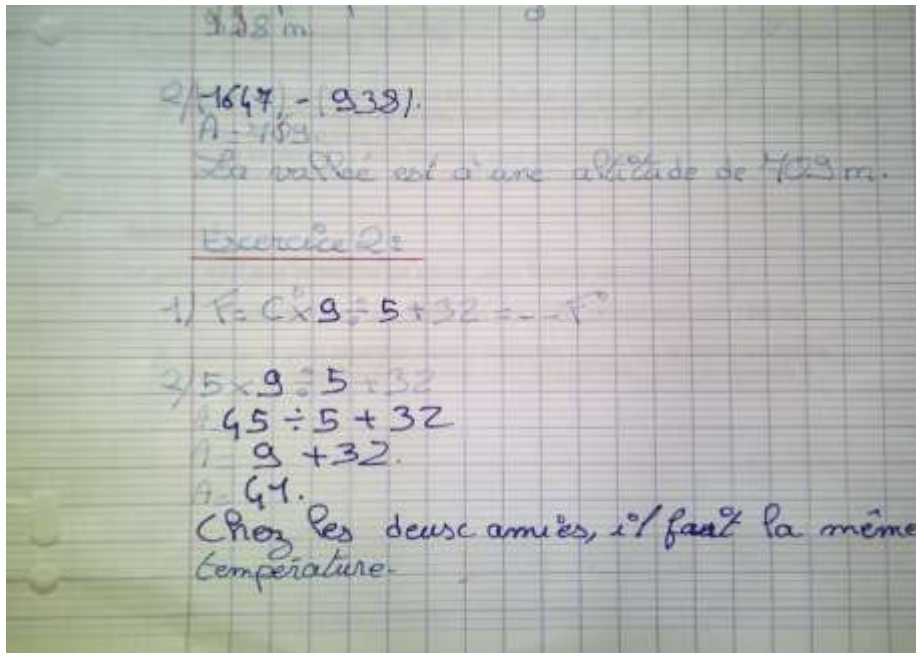 938 m
2/ (1647) - (938).
A = 709.
La vallée est à une altitude de 709 m.
Excercice 2:
1) F = C° x 9 ÷ 5 + 32 = -- F°
2/ 5 x 9 ÷ 5 + 32
A = 45 ÷ 5 + 32
A = 9 + 32.
A = 41.
Chez les deusc amiès, il fait la même
température.